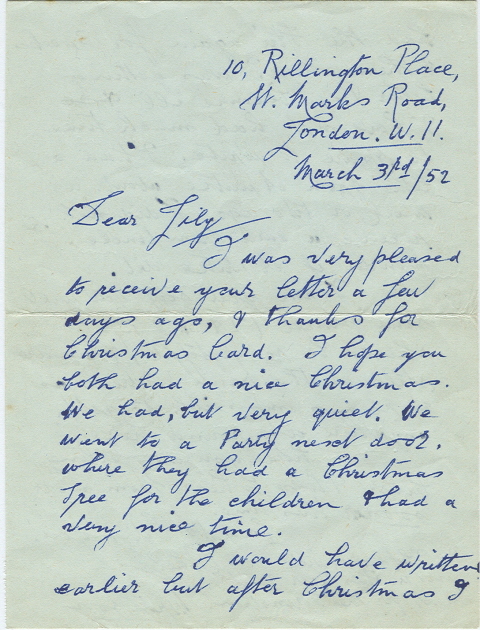 10, Rillington Place,
St. Marks Road,
London. W. 11.
March 3rd/52
Dear Lily
I was very pleased
to receive your letter a few
days ago, & thanks for
Christmas Card. I hope you
both had a nice Christmas.
We had, but very quiet. We
went to a Party next door,
where they had a Christmas
Tree for the children & had a
very nice time.
I would have written
earlier but after Christmas I